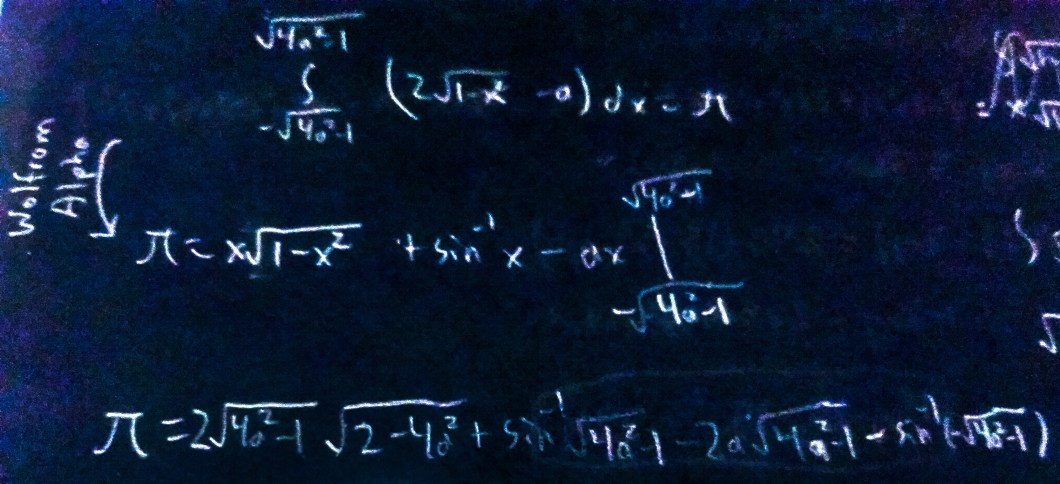 ∫_{-√(4a²-1)}^{√(4a²-1)} (2√(1-x²) - a) dx = π
Wolfrom Alpha
π = x√(1-x²) + sin⁻¹x - ax |_{-√(4a²-1)}^{√(4a²-1)}
π = 2√(4a²-1) √(2-4a²) + sin⁻¹√(4a²-1) - 2a√(4a²-1) - sin⁻¹(-√(4a²-1))